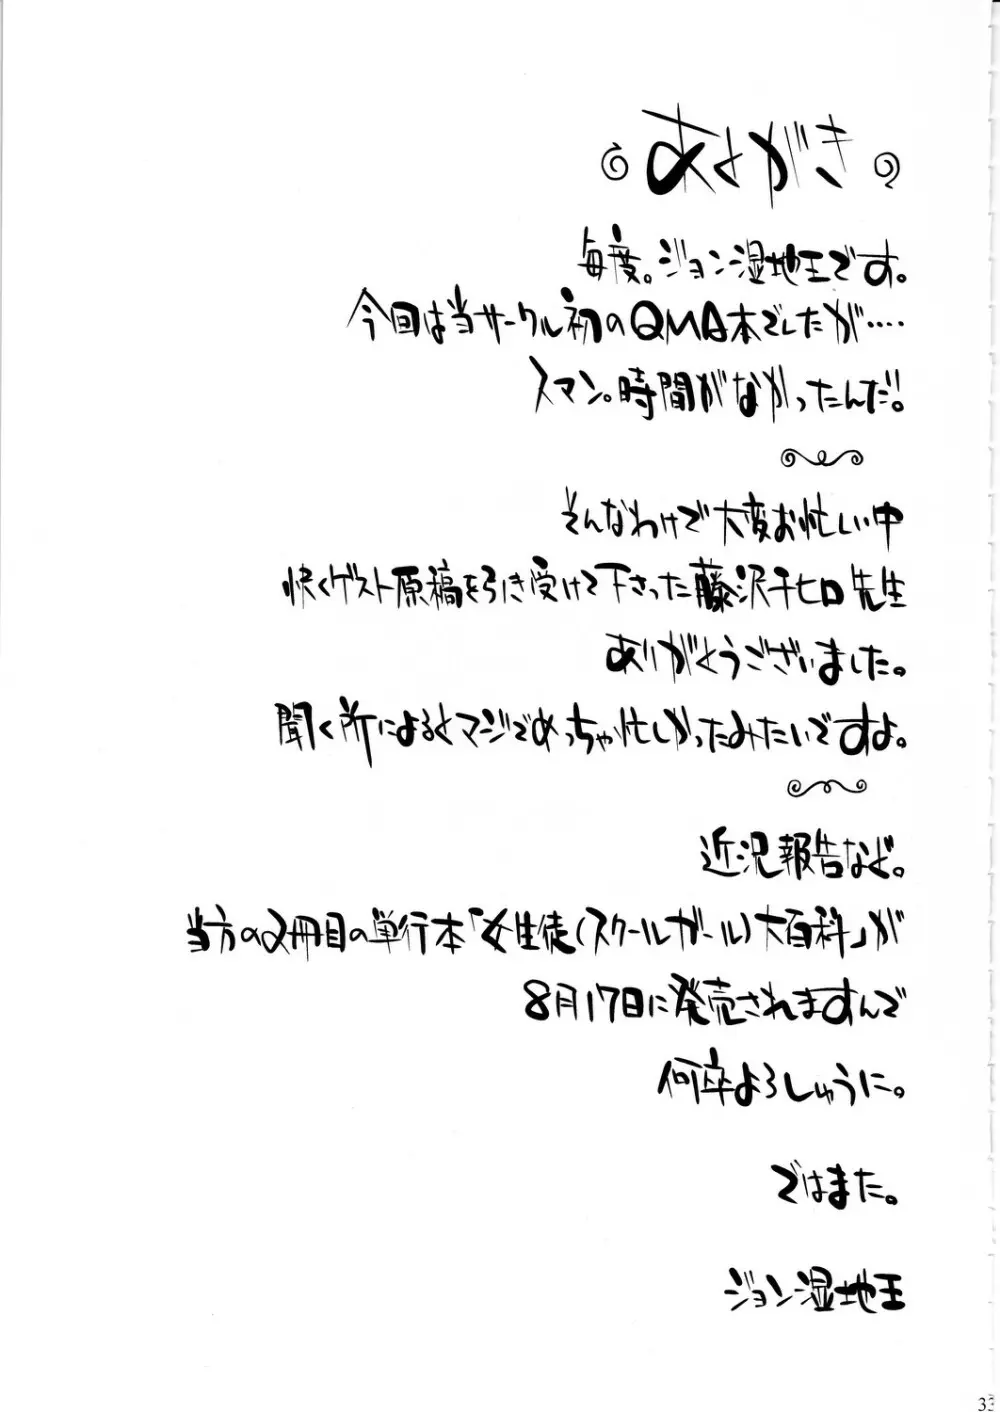 あとがき
毎度。ジョン湿地王です。
今回は当サークル初のQMA本でしたが‥‥
スマン。時間がなかったんだ!。
そんなわけで大変お忙しい中
快くゲスト原稿を引き受けて下さった藤沢チヒロ先生
ありがとうございました。
聞く所によるとマジでめっちゃ忙しかったみたいですよ。
近況報告など。
当方の2冊目の単行本「女生徒(スクールガール)大百科」が
8月17日に発売されますんで
何卒よろしゅうに。
ではまた。
ジョン湿地王
33